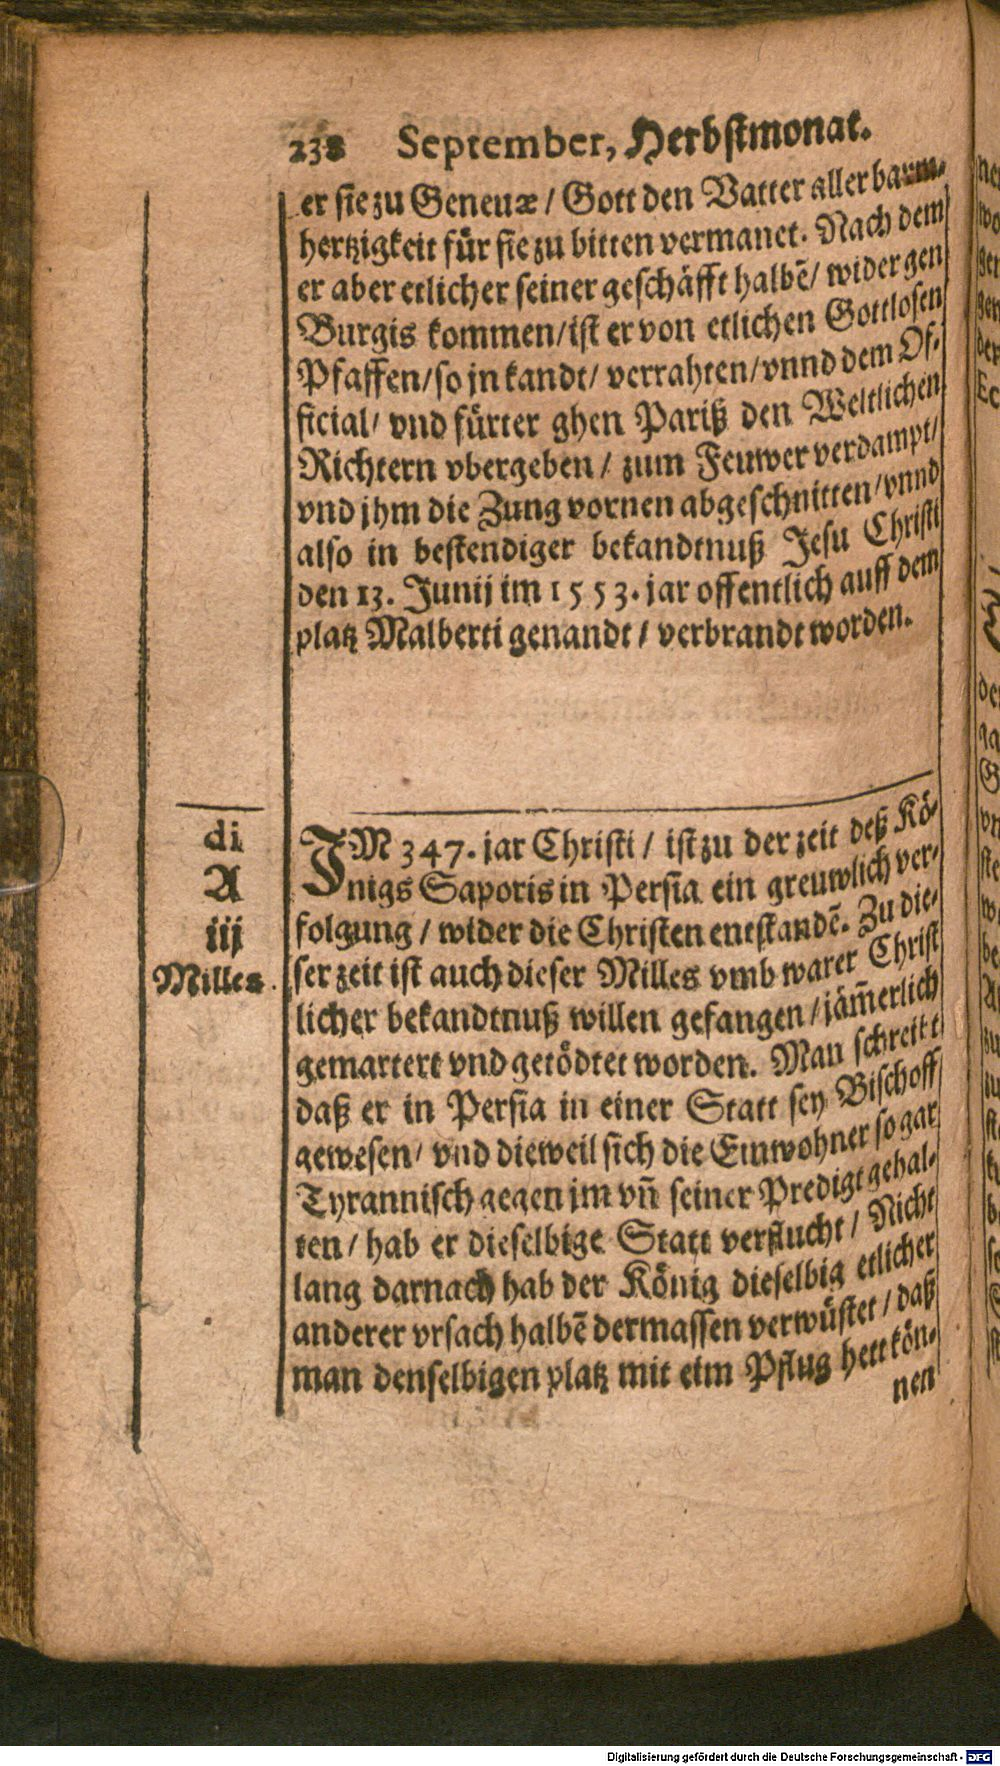 238 September, Herbſtmonat.
er ſie zu Geneuæ / Gott den Vatter aller barm-
hertzigkeit für ſie zu bitten vermanet. Nach dem
er aber etlicher ſeiner geſchäfft halbẽ / wider gen
Burgis kommen / iſt er von etlichen Gottloſen
Pfaffen / ſo jn kandt / verrahten / vnnd dem Of-
ficial / vnd fürter ghen Pariß den Weltlichen
Richtern vbergeben / zum Feuwer verdampt /
vnd jhm die Zung vornen abgeſchnitten / vnnd
alſo in beſtendiger bekandtnuß Jeſu Chriſti
den 13. Junij im 1553. jar offentlich auff dem
platz Malberti genandt / verbrandt worden.
di
A
iij
Milles.
IM 347. jar Chriſti / iſt zu der zeit deß Kö-
nigs Saporis in Perſia ein greuwlich ver-
folgung / wider die Chriſten entſtandẽ. Zu die-
ſer zeit iſt auch dieſer Milles vmb warer Chriſt
licher bekandtnuß willen gefangen / jäm̃erlich
gemartert vnd getödtet worden. Man ſchreibt
daß er in Perſia in einer Statt ſey Biſchoff
geweſen / vnd dieweil ſich die Einwohner ſo gar
Tyranniſch gegen jm vñ ſeiner Predigt gehal-
ten / hab er dieſelbige Statt verflucht / Nicht
lang darnach hab der König dieſelbig etlicher
anderer vrſach halbẽ dermaſſen verwüſtet / daß
man denſelbigen platz mit eim Pflug hett kön-
nen
Digitalisierung gefördert durch die Deutsche Forschungsgemeinschaft - DFG